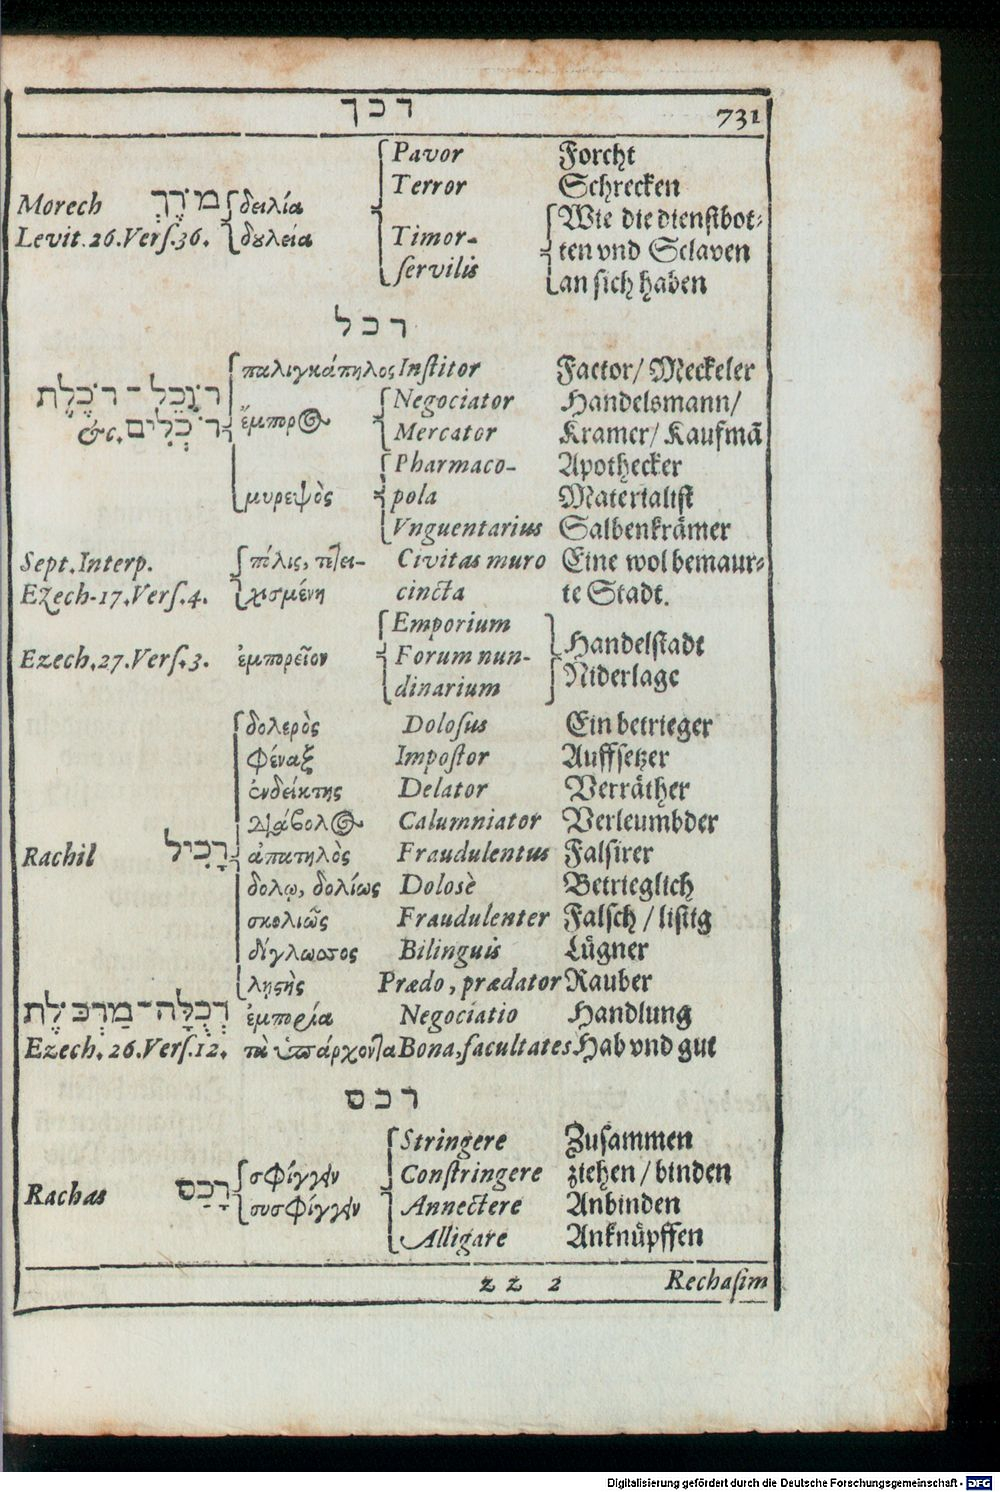 רכך 731
Pavor Forcht
Terror Schrecken
Morech מֹרֶךְ δειλία Wie die dienstbot-
Levit. 26. Vers. 36. δȣλεία Timor- ten vnd Sclaven
servilis an sich haben
רכל
παλιγκάπηλος Institor Factor / Meckeler
רוֹכֵל - רֹכֶלֶת ἔμπορος Negociator Handelsmann/
רֹכְלִים &c. Mercator Kramer / Kaufmā
Pharmaco- Apothecker
μυρεψὸς pola Materialist
Vnguentarius Salbenkrämer
Sept. Interp. πόλις, τετει- Civitas muro Eine wol bemaur-
Ezech. 17. Vers. 4. χισμένη cincta te Stadt.
Emporium Handelstadt
Ezech. 27. Vers. 3. ἐμπορεῖον Forum nun- Niderlage
dinarium
δολερὸς Dolosus Ein betrieger
Φέναξ Impostor Auffsetzer
ἐνδείκτης Delator Verräther
διάβολος Calumniator Verleumbder
Rachil רָכִיל ἀπατηλὸς Fraudulentus Falsirer
δολῳ, δολίως Dolosè Betrieglich
σκολιῶς Fraudulenter Falsch / listig
δίγλωσσος Bilinguis Lügner
λῃστὴς Prædo, prædator Rauber
רְכֻלָּה - מַרְכֹּלֶת ἐμπορία Negociatio Handlung
Ezech. 26. Vers. 12. τὰ ὑπάρχοντα Bona, facultates Hab vnd gut
רכס
Stringere Zusammen
σΦίγγειν Constringere ziehen / binden
Rachas רָכַס συσΦίγγειν Annectere Anbinden
Alligare Anknüpffen
zz 2 Rechasim
Digitalisierung gefördert durch die Deutsche Forschungsgemeinschaft - DFG